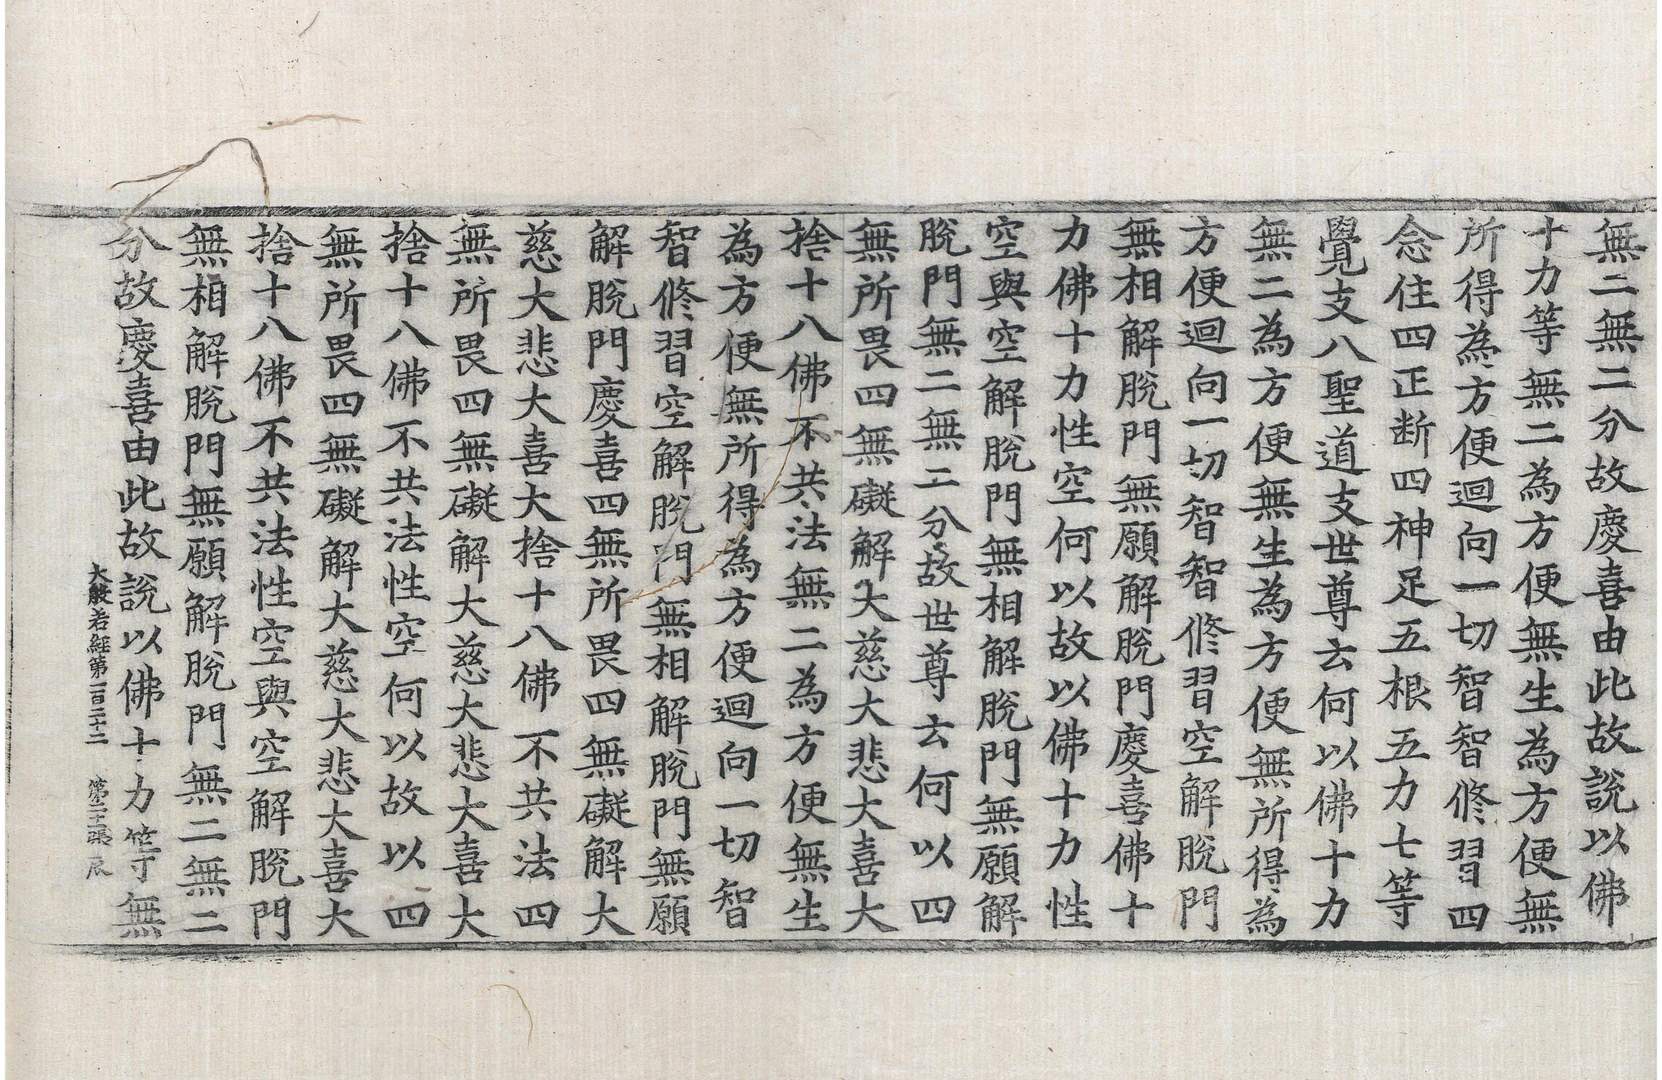 無二無二分故慶喜由此故說以佛
十力等無二為方便無生為方便無
所得為方便迴向一切智智修習四
念住四正斷四神足五根五力七等
覺支八聖道支世尊云何以佛十力
無二為方便無生為方便無所得為
方便迴向一切智智修習空解脫門
無相解脫門無願解脫門慶喜佛十
力佛十力性空何以故以佛十力性
空與空解脫門無相解脫門無願解
脫門無二無二分故世尊云何以四
無所畏四無礙解大慈大悲大喜大
捨十八佛不共法無二為方便無生
為方便無所得為方便迴向一切智
智修習空解脫門無相解脫門無願
解脫門慶喜四無所畏四無礙解大
慈大悲大喜大捨十八佛不共法四
無所畏四無礙解大慈大悲大喜大
捨十八佛不共法性空何以故以四
無所畏四無礙解大慈大悲大喜大
捨十八佛不共法性空與空解脫門
無相解脫門無願解脫門無二無二
分故慶喜由此故說以佛十力等無
大般若經第一百二十二 第二十張 辰